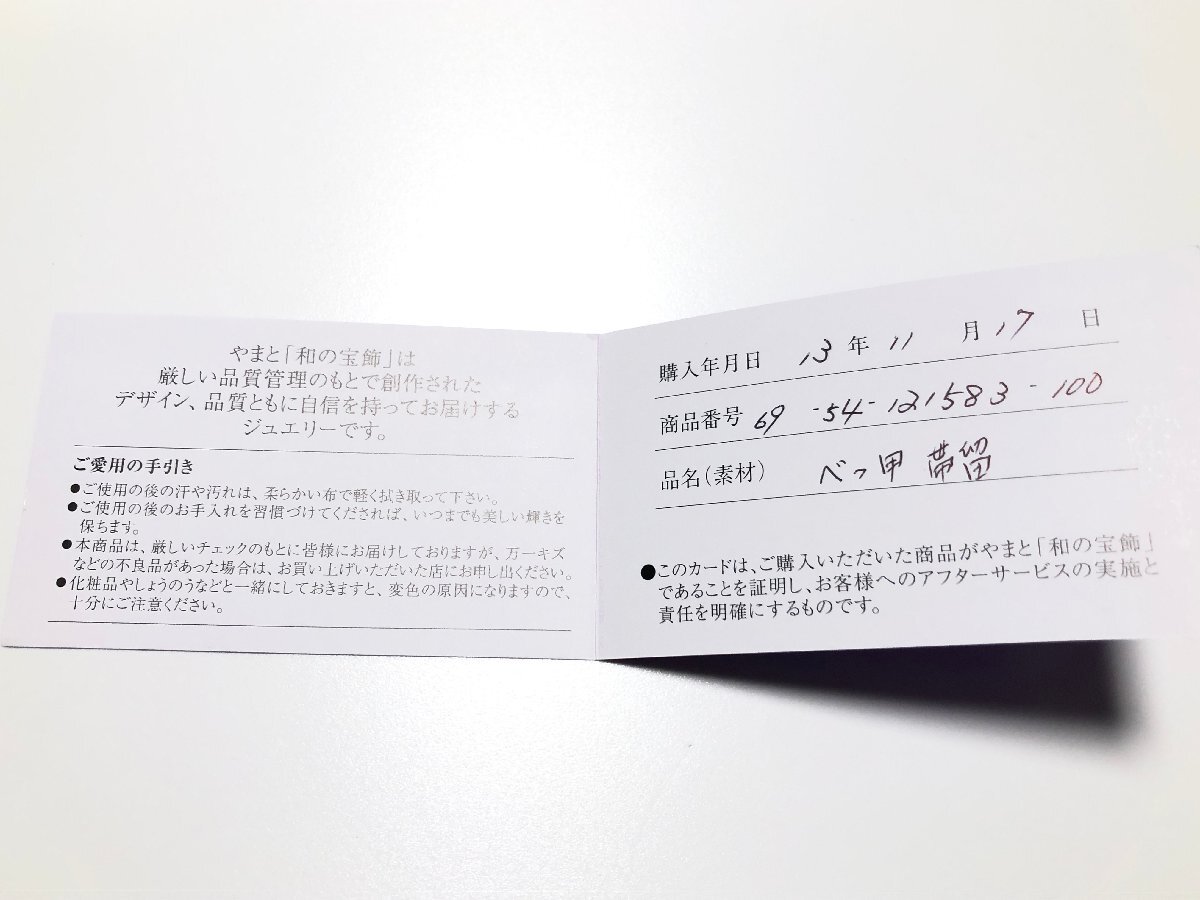 やまと「和の宝飾」は
厳しい品質管理のもとで創作された
デザイン、品質ともに自信を持ってお届けする
ジュエリーです。
ご愛用の手引き
●ご使用の後の汗や汚れは、柔らかい布で軽く拭き取って下さい。
●ご使用の後のお手入れを習慣づけてくだされば、いつまでも美しい輝きを
保ちます。
●本商品は、厳しいチェックのもとに皆様にお届けしておりますが、万一キズ
などの不良品があった場合は、お買い上げいただいた店にお申し出ください。
●化粧品やしょうのうなどと一緒にしておきますと、変色の原因になりますので、
十分にご注意ください。
購入年月日 13 年 11 月 17 日
商品番号 69-54-121583-100
品名(素材) べっ甲 帯留
●このカードは、ご購入いただいた商品がやまと「和の宝飾」
であることを証明し、お客様へのアフターサービスの実施と
責任を明確にするものです。